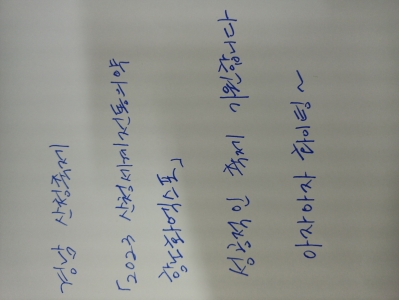 경남 산청축제
「2023 산청세계전통의약
항노화엑스포」
성공적인 축제 기원합니다
아자아자 화이팅~